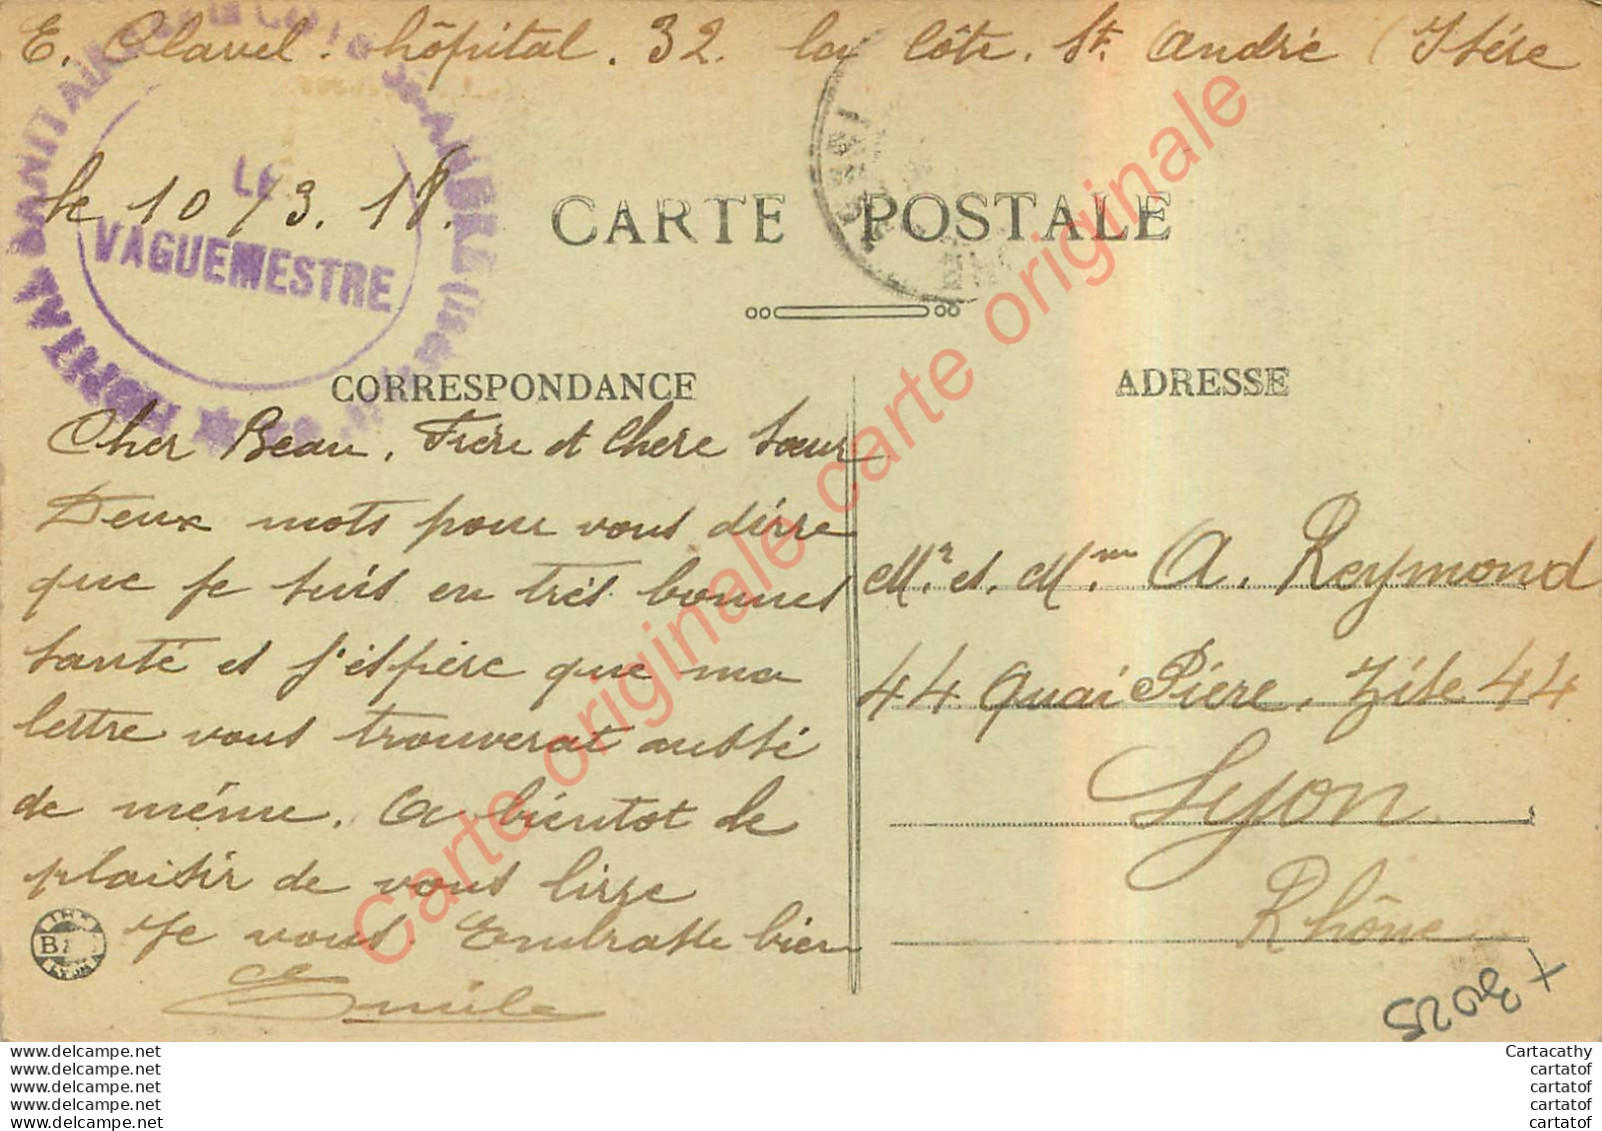 E. Clavel. hôpital. 32. la côte. St. André (Isére
le 10/3.18.
LE
VAGUEMESTRE
HOPITAL SANITAIRE
CARTE POSTALE
CORRESPONDANCE
ADRESSE
Cher Beau, Frére et Chere Sœur
Deux mots pour vous dirre
que je suis en très bonnes
santé et j'éspère que ma
lettre vous trouverat aussi
de méme. A bientot de
plaisir de vous lirre
Je vous Embrasse bien
Emile
Mr. et. Mme. A. Reymond
44 Quai Piere, Zise 44
Lyon
Rhône
B
LYON
+ 3025
Carte originale carte originale carte originale
www.delcampe.net
www.delcampe.net
www.delcampe.net
www.delcampe.net
www.delcampe.net
Cartacathy
cartatof
cartatof
cartatof
cartatof